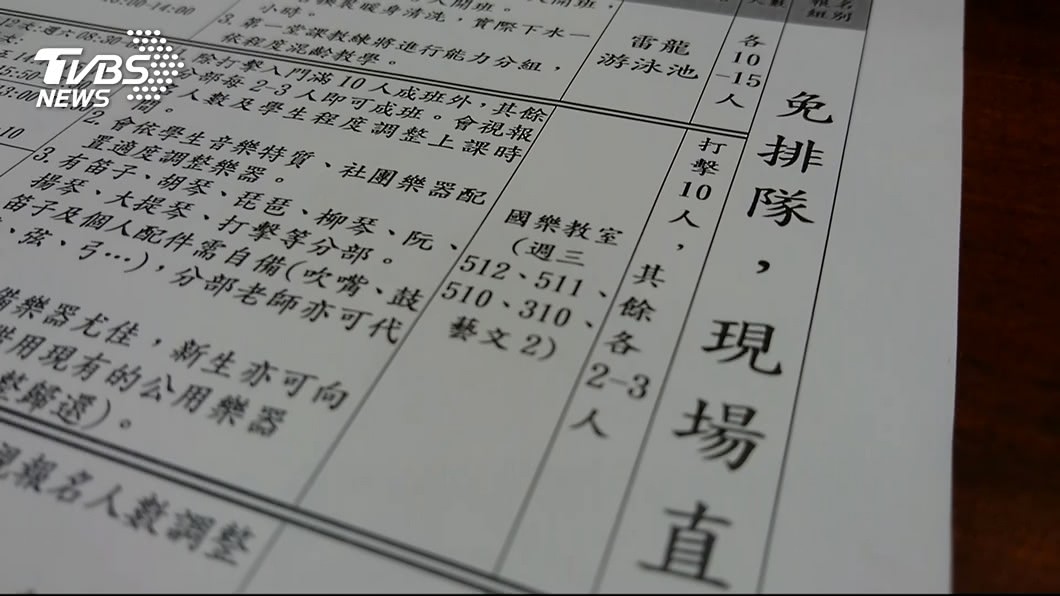 TVBS
NEWS
10:00-14:00
小時。
3. 第一堂課教練將進行能力分組，
依程度混齡教學。
雷龍
游泳池
各
10
-15
人
報名
組別
除打擊入門滿 10 人成班外，其餘
分部每 2-3 人即可成班。會視報
名人數及學生程度調整上課時
間。
2. 會依學生音樂特質、社團樂器配
置適度調整樂器。
3. 有笛子、胡琴、琵琶、柳琴、阮、
揚琴、大提琴、打擊等分部。
笛子及個人配件需自備(吹嘴、鼓
、弦、弓…)，分部老師亦可代
備樂器尤佳，新生亦可向
借用現有的公用樂器
整歸還)。
國樂教室
(週三
512、511、
510、310、
藝文 2)
打
擊
10
人
，
其
餘
各
2-3
人
免
排
隊
，
現
場
直
視報名人數調整